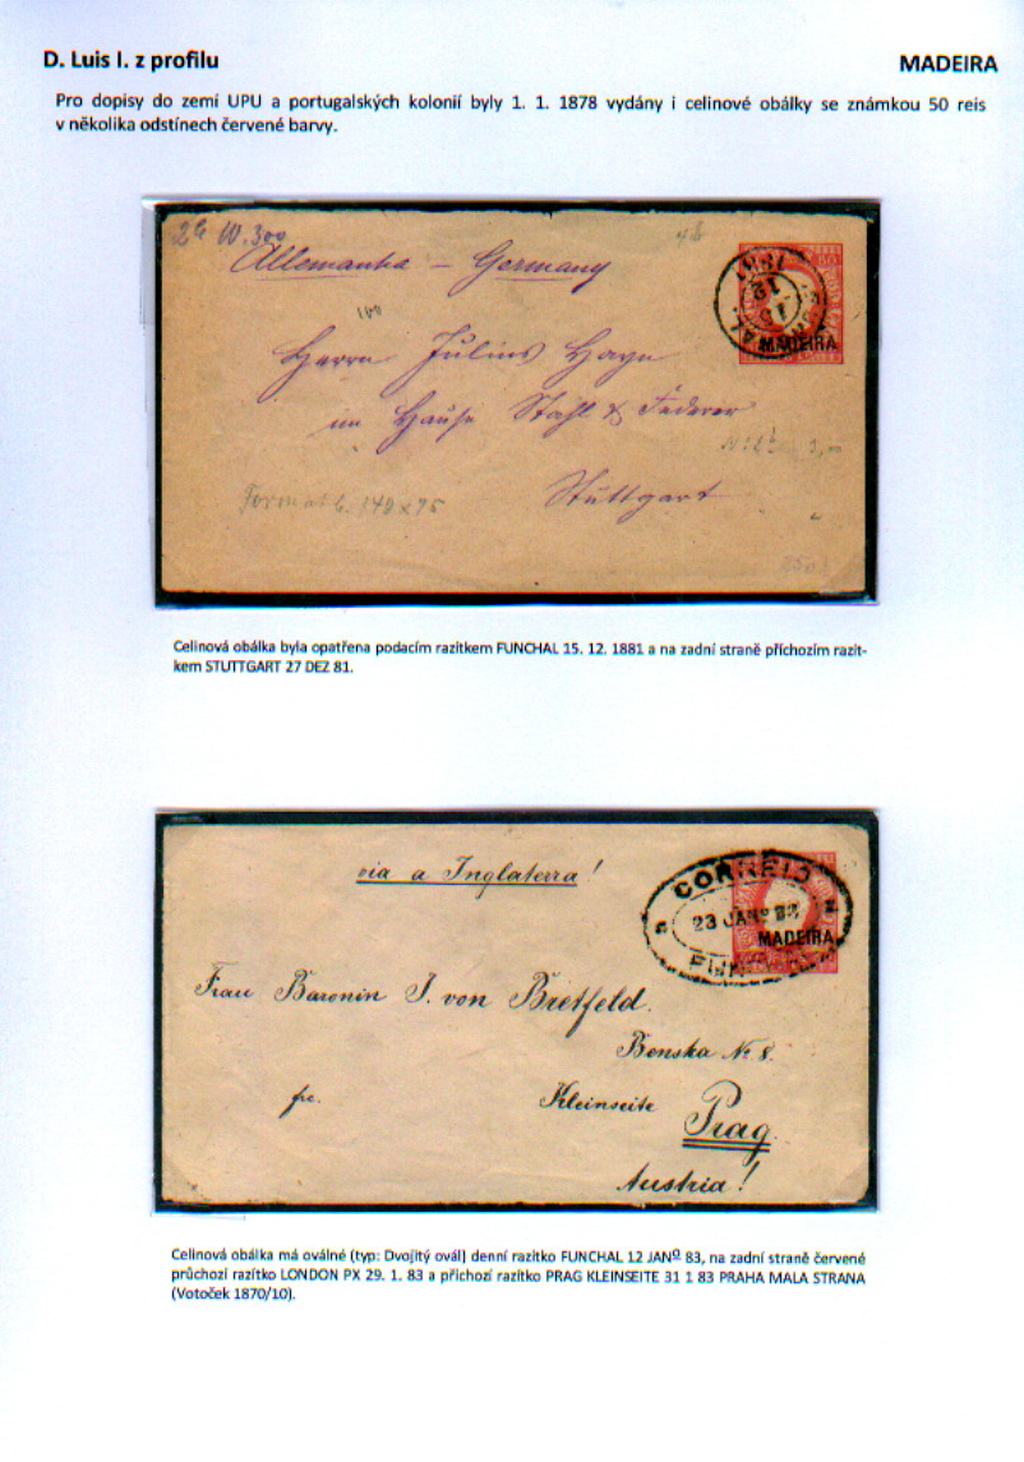 D. Luis I. z profilu
MADEIRA
Pro dopisy do zemí UPU a portugalských kolonií byly 1. 1. 1878 vydány i celinové obálky se známkou 50 reis
v několika odstínech červené barvy.
W. 300
Allemanha – Germany
100
1881
12
15
MADEIRA
Herrn Julius Hayn
im Hause Stahl & Federer
Stuttgart
Format b. 140 x 75
Celinová obálka byla opatřena podacím razítkem FUNCHAL 15. 12. 1881 a na zadní straně příchozím razít-
kem STUTTGART 27 DEZ 81.
via a Inglaterra!
CORREIO
23 JANº 83
MADEIRA
Frau Baronin J. von Bretfeld.
Benska № 8.
fre.
Kleinseite
Prag.
Austria!
Celinová obálka má oválné (typ: Dvojitý ovál) denní razítko FUNCHAL 12 JANº 83, na zadní straně červené
průchozí razítko LONDON PX 29. 1. 83 a příchozí razítko PRAG KLEINSEITE 31 1 83 PRAHA MALA STRANA
(Votoček 1870/10).